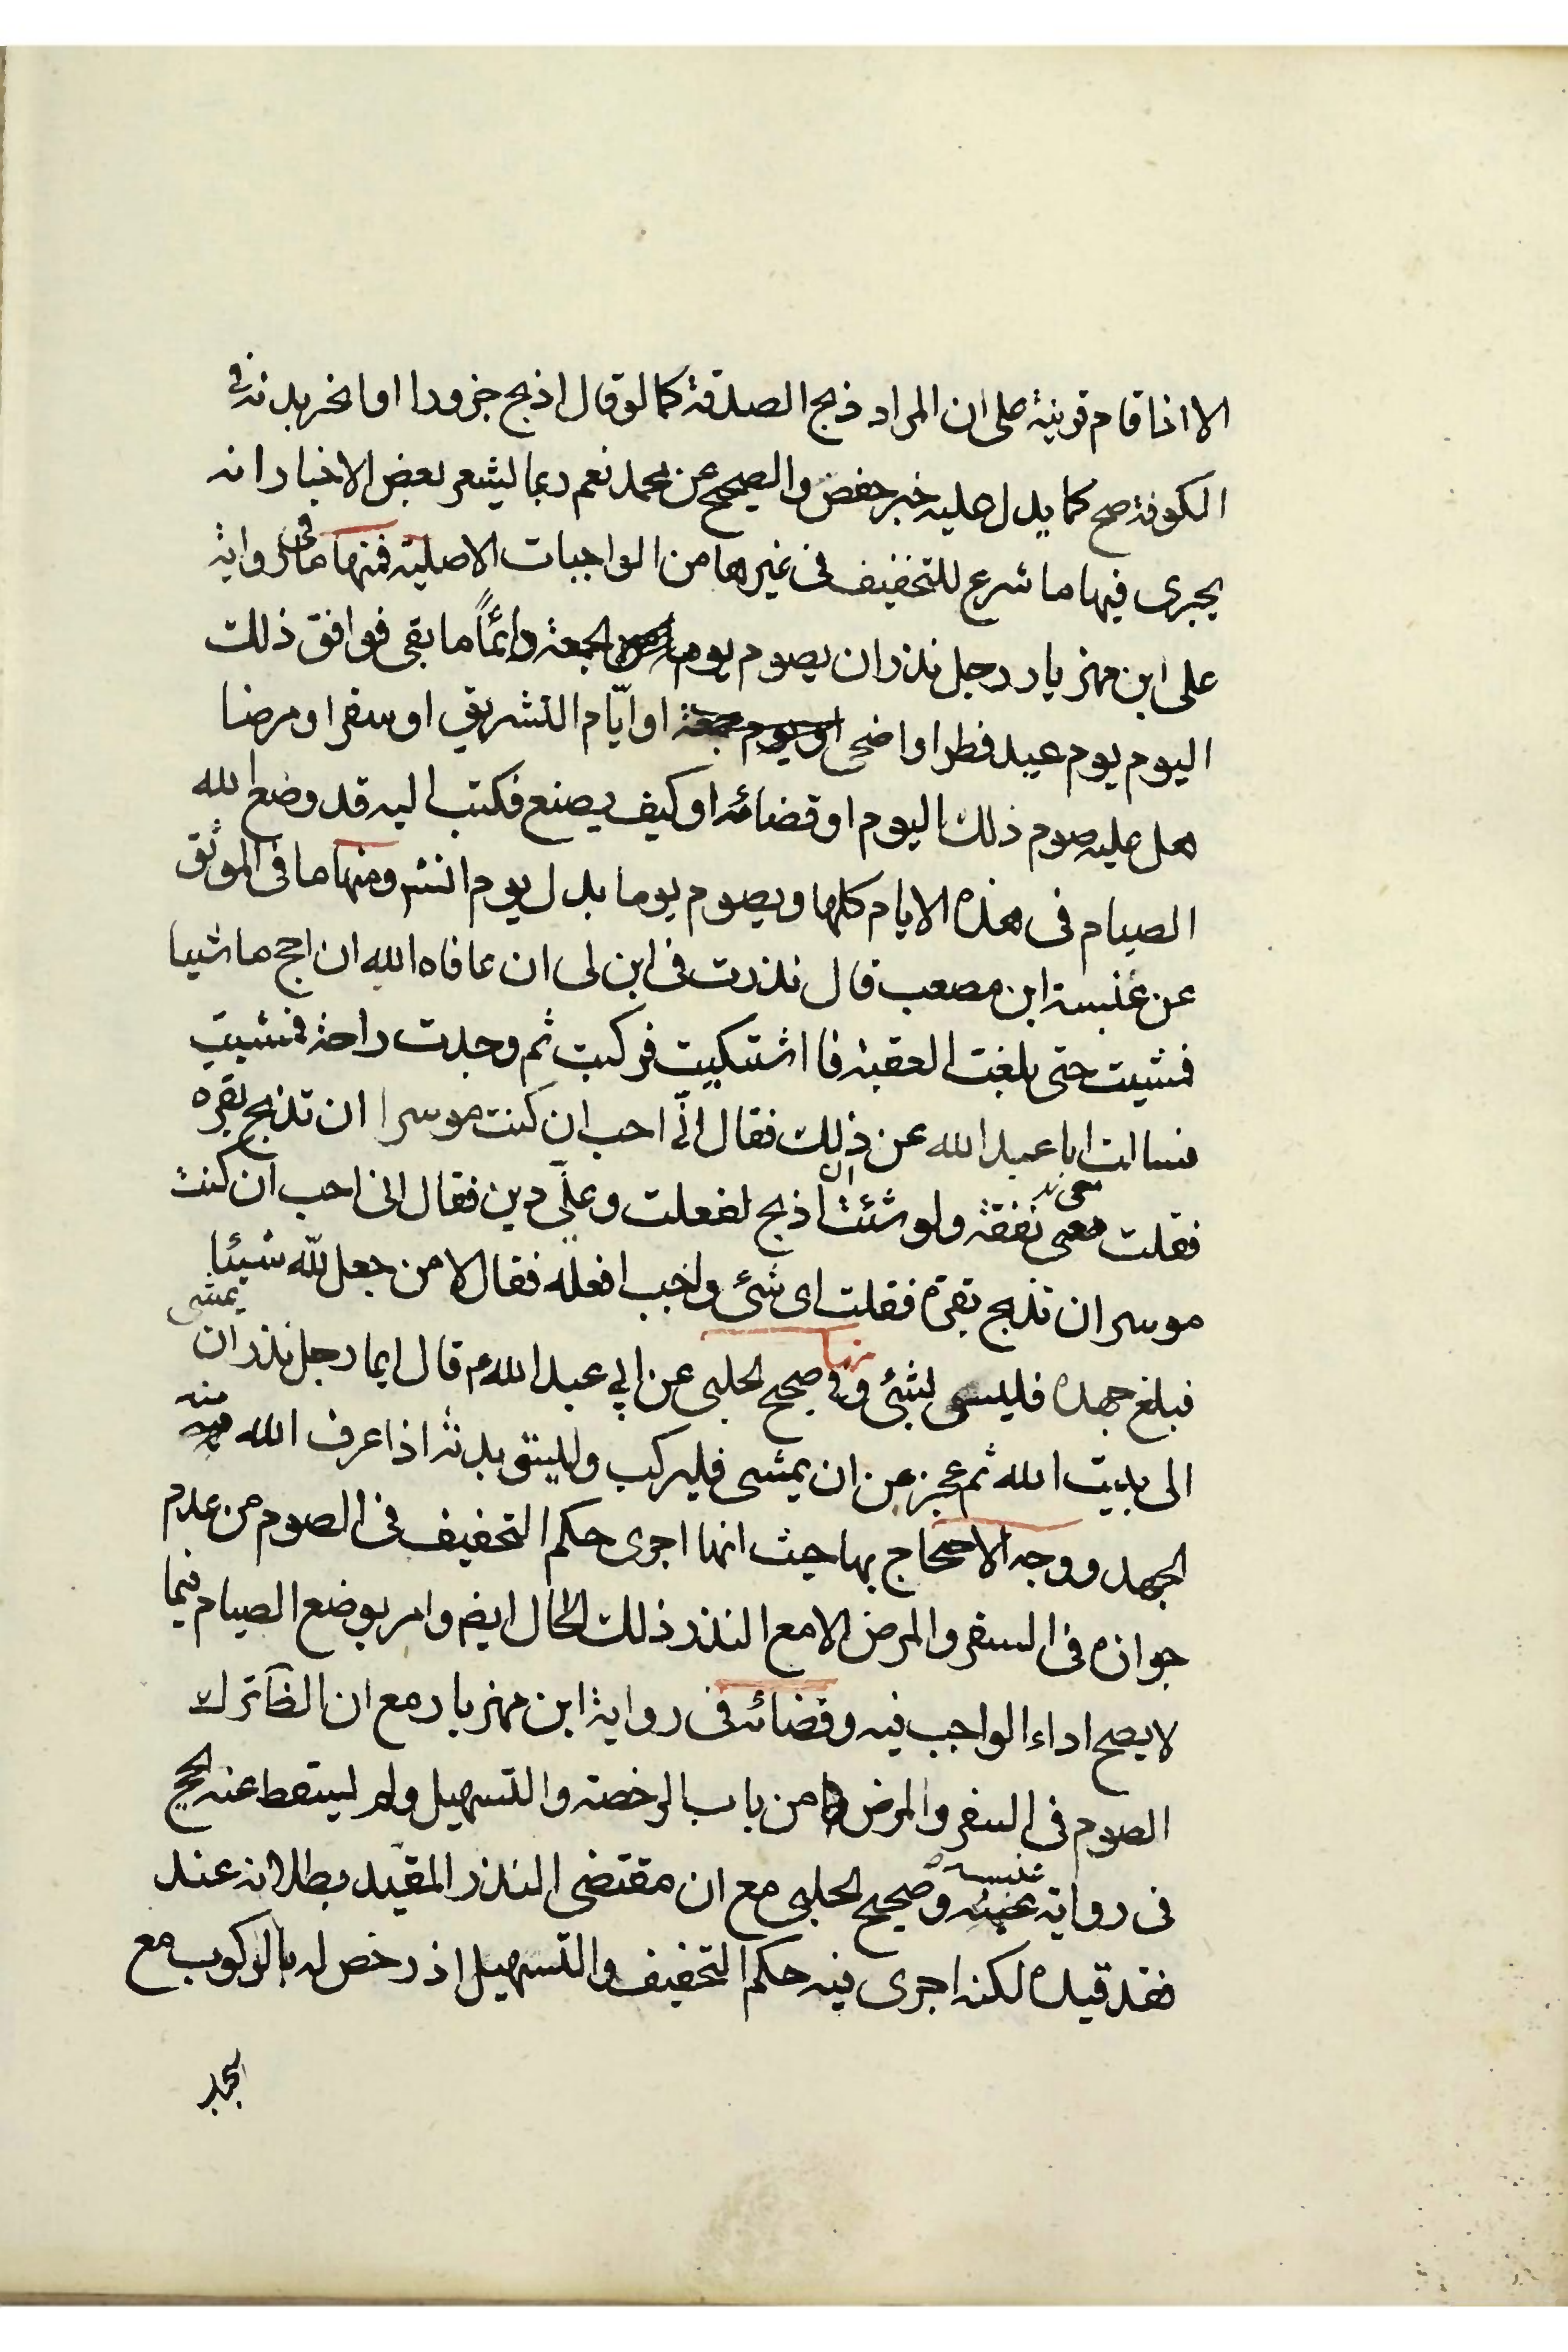 الا اذا قام قرينة على ان المراد ذبح الصدقة كما لو قال اذبح جزورا او انحر بدنة في
الكوفة صح كما يدل عليه خبر حفص والصحيح عن محمد نعم ربما يشعر بعض الاخبار انه
يجرى فيها ما شرع للتخفيف فى غيرها من الواجبات الاصلية فمنها ما فى رواية
على ابن مهزيار رجل نذر ان يصوم يوم الجمعة دائماً ما بقى فوافق ذلك
اليوم يوم عيد فطر او اضحى او يوم جمعة او ايّام التشريق او سفر او مرضا
هل عليه صوم ذلك اليوم او قضائه او كيف يصنع فكتب اليه قد وضع الله
الصيام فى هذه الايام كلها ويصوم يوما بدل يوم انشر ومنها ما فى الموثق
عن عنبسة ابن مصعب قال نذرت فى ابن لى ان عافاه الله ان احج ماشيا
فمشيت حتى بلغت العقبة فاشتكيت فركبت ثم وجدت راحة فمشيت
فسالت ابا عبد الله عن ذلك فقال انّى احب ان كنت موسرا ان تذبح بقره
فقلت معى نفقة ولو شئت ان اذبح لفعلت وعلّى دين فقال انى احب ان كنت
موسر ان تذبح بقرة فقلت اى شئ واجب افعله فقال لا من جعل لله شيئا
فبلغ جهده فليس لشئ ومنها فى صحيح الحلبى عن ابي عبد الله ع قال ايما رجل نذر ان يمشى
الى بيت الله ثم عجز عن ان يمشى فليركب وليسق بدنة اذا عرف الله منه
الجهد ووجه الاحتجاج بها حيث انها اجرى حكم التخفيف فى الصوم من عدم
جوازه فى السفر والمرض الا مع النذر ذلك الحال ايضم وامر بوضع الصيام فيما
لا يصح اداء الواجب فيه وقضائه فى رواية ابن مهزيار مع ان الظ ترك
الصوم فى السفر والمرض من باب الرخصة والتسهيل ولم يسقط عنه الحج
فى رواية عنبسة وصحيح الحلبى مع ان مقتضى النذر المقيد بطلانه عند
فقد قيده لكنه اجرى فيه حكم التخفيف والتسهيل اذ رخص له بالركوب مع